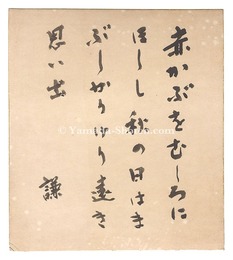 赤かぶをむしろに
ほしし秋の日はま
ぶしかりけり遠き
思い出
謙
© Yamada-Shoten.com